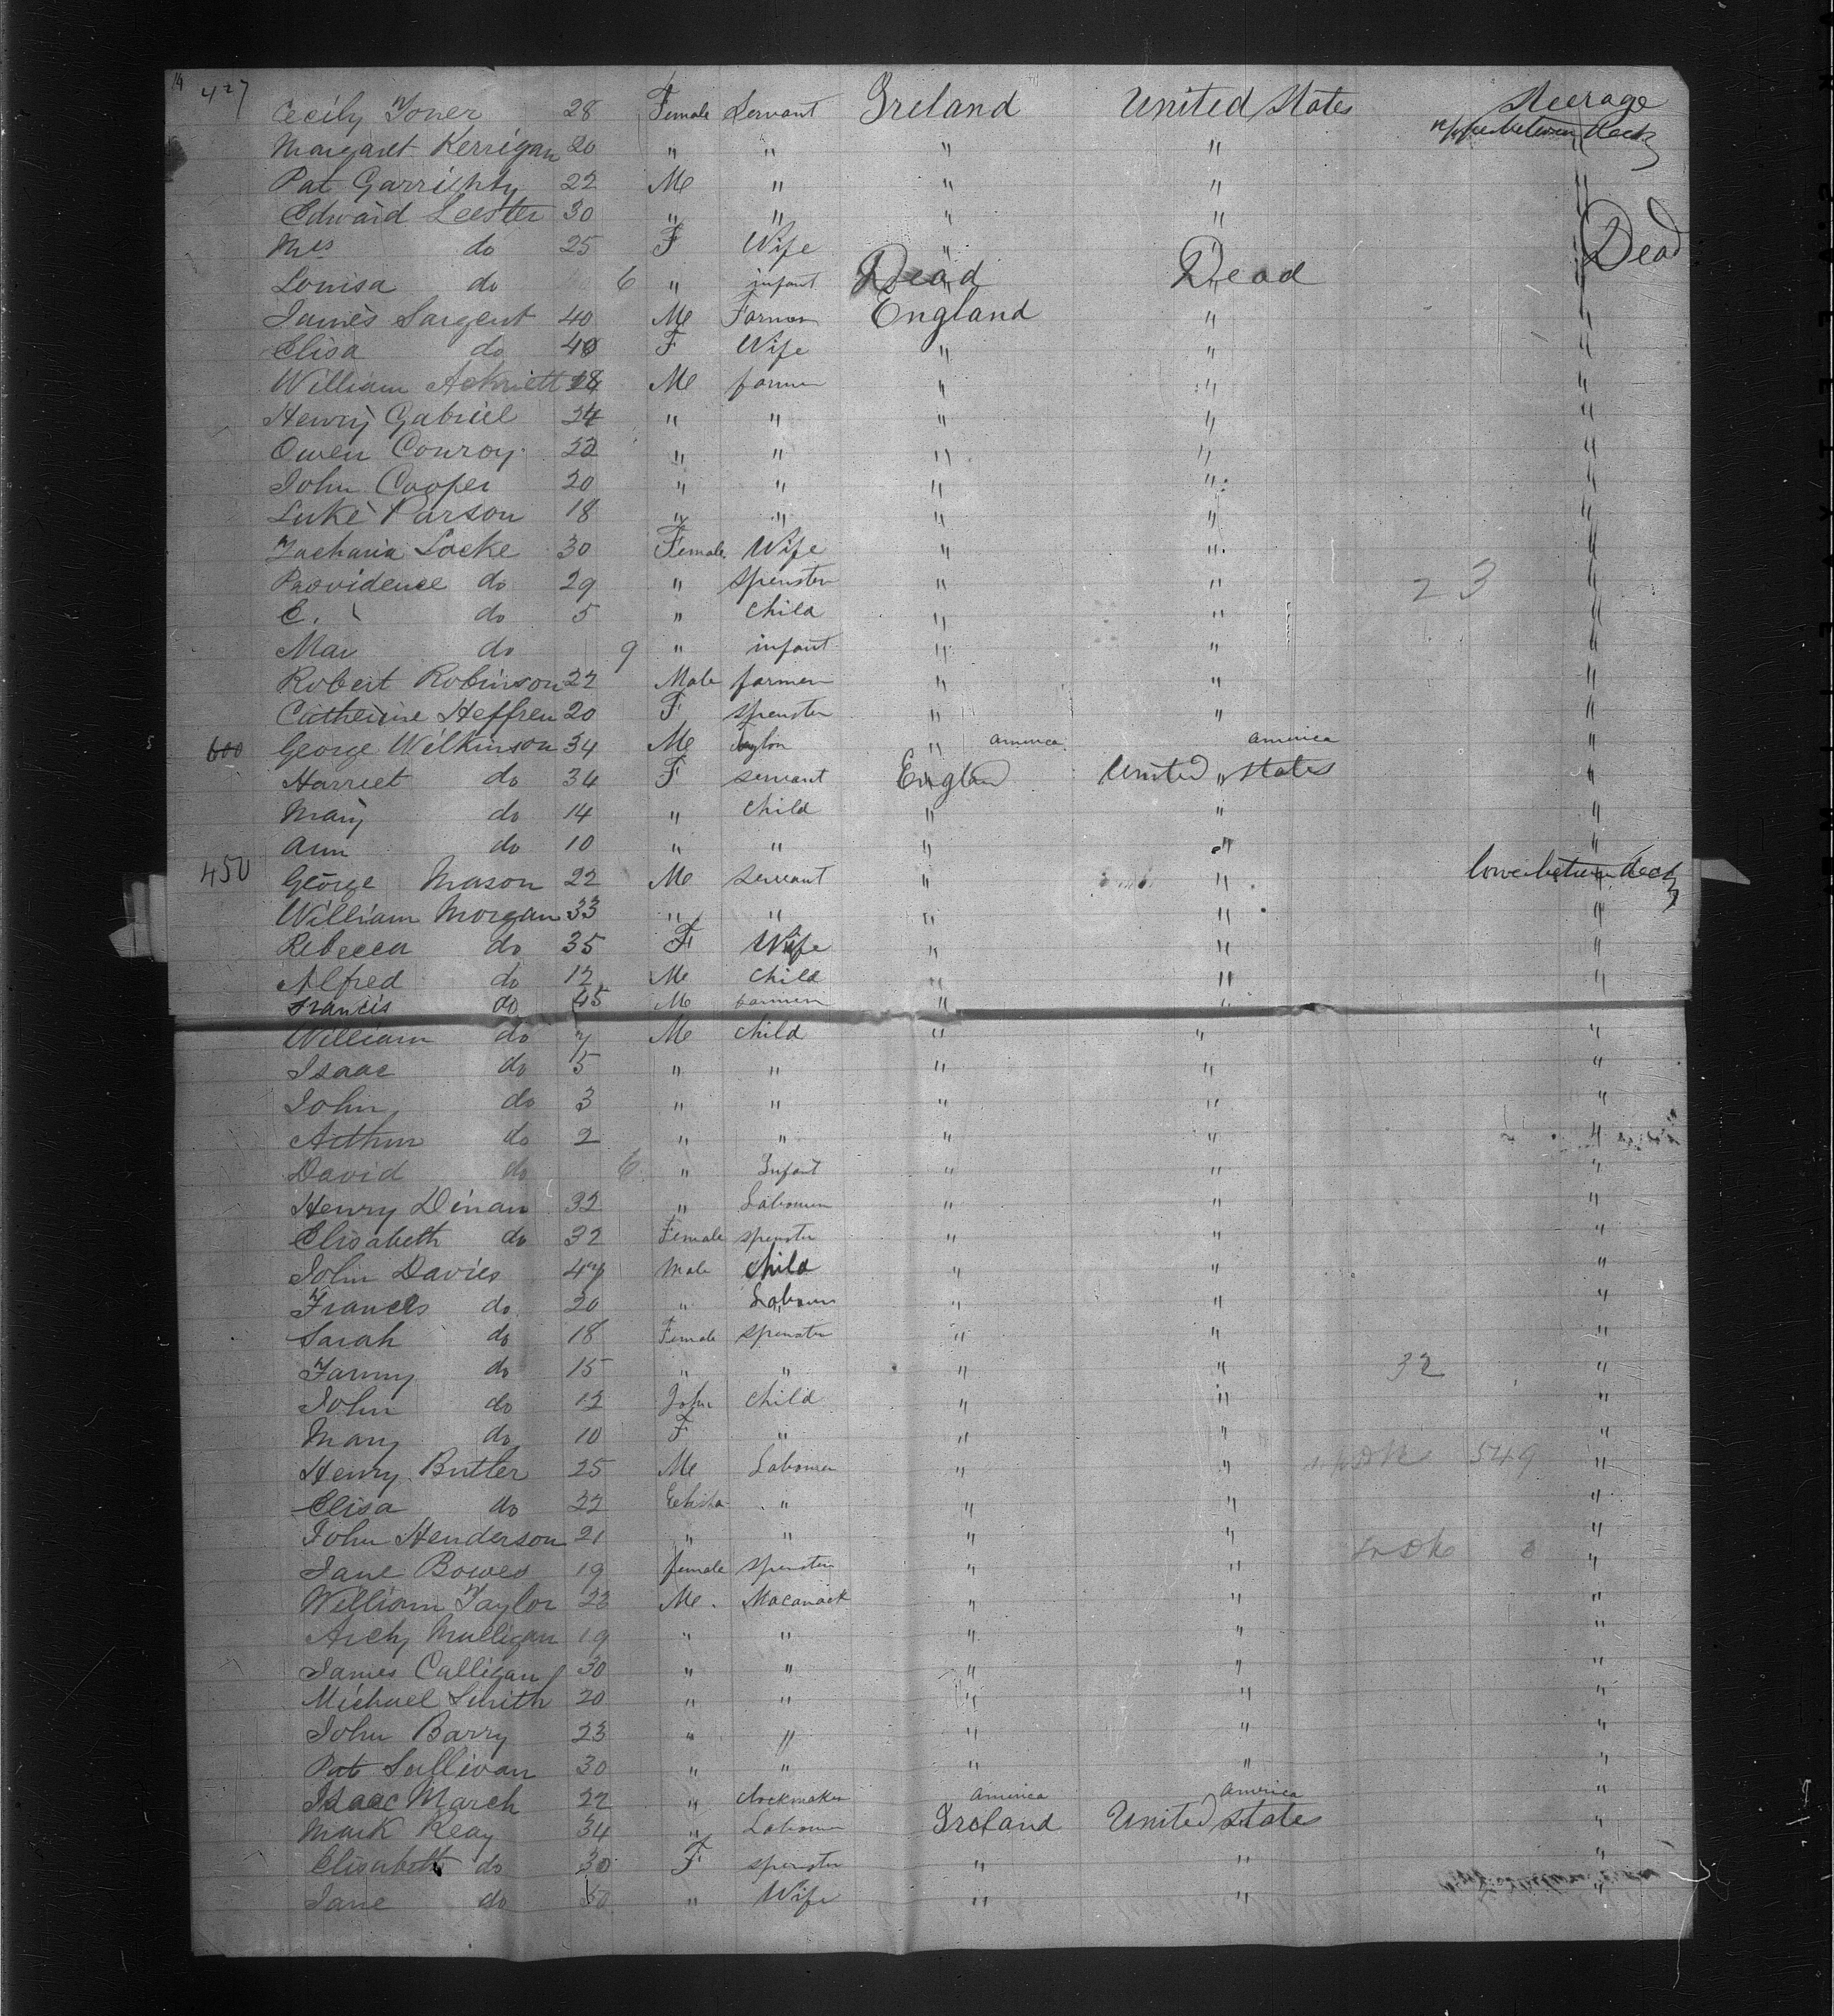 14 427
Cecily Toner 28 Female Servant Ireland United States Steerage
Margaret Kerrigan 20 " " " " upper between decks
Pat Garrighty 22 Me " " " "
Edward Leester 30 " " " " "
Mrs do 25 F Wife " " "
Louisa do 6 " infant Dead Dead Dead
James Sargent 40 Me Farmer England " "
Elisa do 40 F Wife " " "
William 24 Me farmer " " "
Henry Gabriel 24 " " " " "
Owen Conroy 22 " " " " "
John Cooper 20 " " " " "
Luke Parson 18 " " " " "
Zacharia Locke 30 Female Wife " " "
Providence do 29 " spenster " " 23 "
E. do 5 " child " " "
Mar do 9 " infant " " "
Robert Robinson 22 Male farmer " " "
Catherine Heffren 20 F spenster " " "
600 George Wilkinson 34 Me Taylor " america america "
Harriet do 34 F servant Englan United States "
Mary do 14 " child " " "
Ann do 10 " " " " "
450 George Mason 22 Me servant " " lower between decks
William Morgan 33 " " " " "
Rebecca do 35 F Wife " " "
Alfred do 12 Me child " " "
Francis do 45 Me farmer " "
William do 7 Me child " " "
Isaac do 5 " " " " "
John do 3 " " " " "
Arthur do 2 " " " " "
David do 6 " Infant " " "
Henry Dinan 32 " Labourer " " "
Elisabeth do 32 Female spenster " " "
John Davies 47 Male child " " "
Frances do 20 " Labourer " " "
Sarah do 18 Female spenster " " "
Fanny do 15 " " " " 32 "
John do 12 John child " " "
Mary do 10 F " " " "
Henry Butler 25 Me Labourer " " 549 "
Elisa do 22 " " " "
John Henderson 21 " " " " "
Jane Bowes 19 female spenster " " "
William Taylor 22 Me. Macanick " " "
Archy Mulligan 19 " " " " "
James Calligan 30 " " " " "
Michael Smith 20 " " " " "
John Barry 23 " " " " "
Pat Sullivan 30 " " " " "
Isaac March 22 " clockmaker america america "
Mark Reay 34 " Labourer Ireland United States "
Elisabeth do 30 F spenster " " "
Jane do 50 " Wife " " "